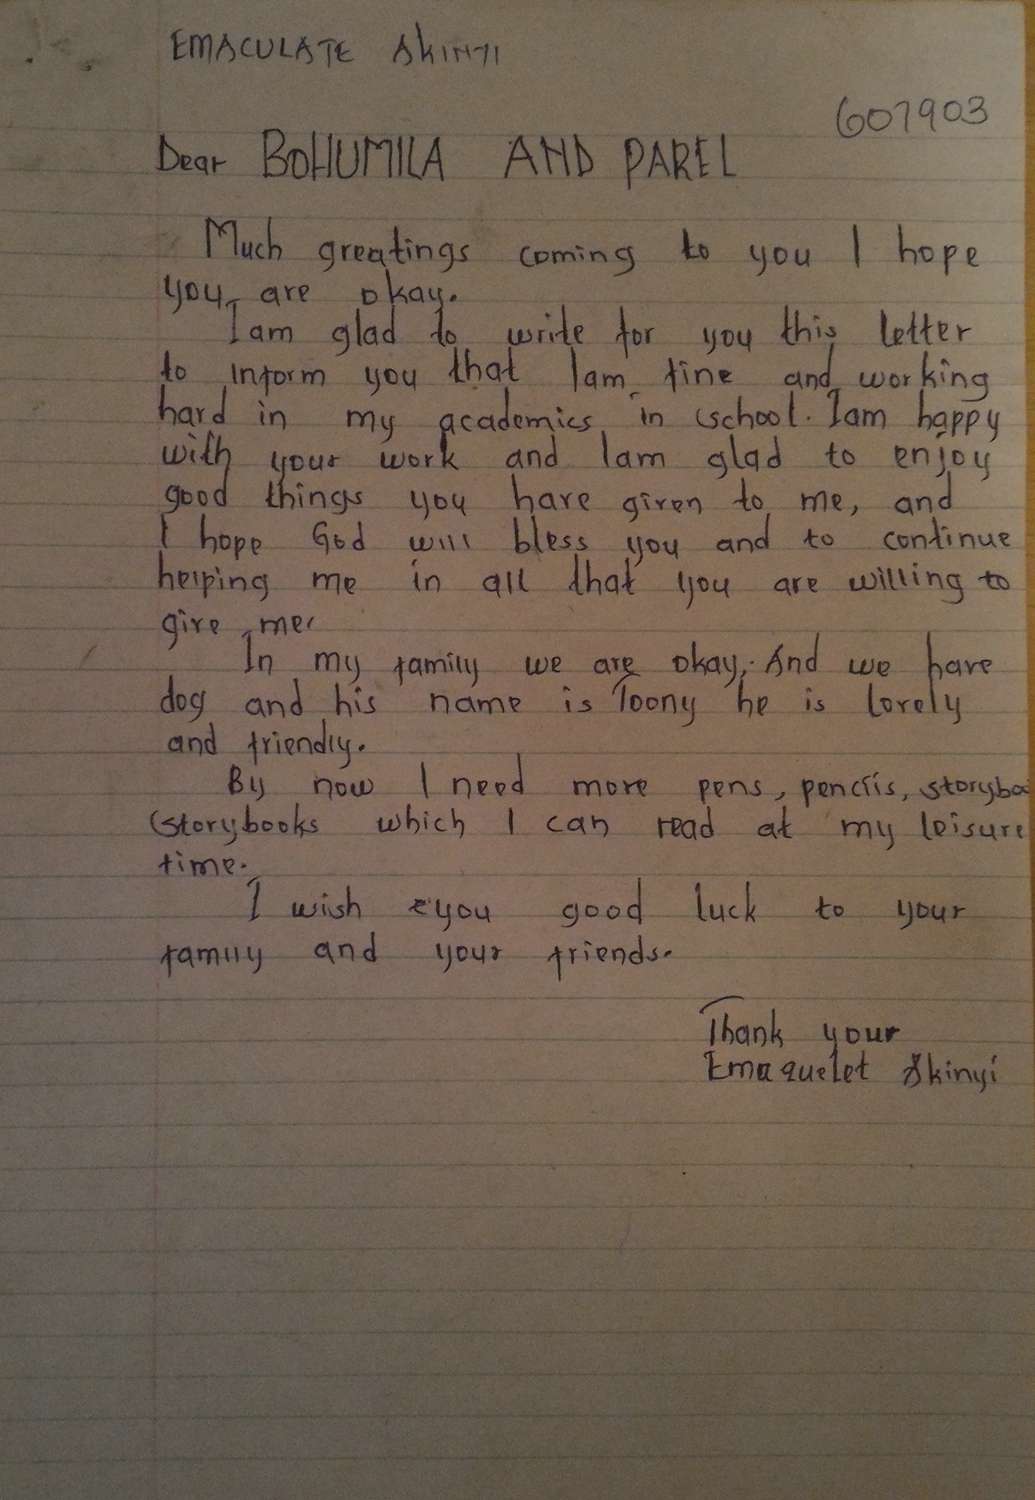 EMACULATE AKINYI
607903
Dear BOHUMILA AND PAREL
Much greatings coming to you I hope
you are okay.
I am glad to write for you this letter
to inform you that Iam fine and working
hard in my academics in school. Iam happy
with your work and Iam glad to enjoy
good things you have given to me, and
I hope God will bless you and to continue
helping me in all that you are willing to
give me.
In my family we are okay,. And we have
dog and his name is Toony he is lovely
and friendly.
By now I need more pens, pencils, storyboo
storybooks which I can read at my leisure
time.
I wish you good luck to your
family and your friends.
Thank your
Emaquelet Akinyi